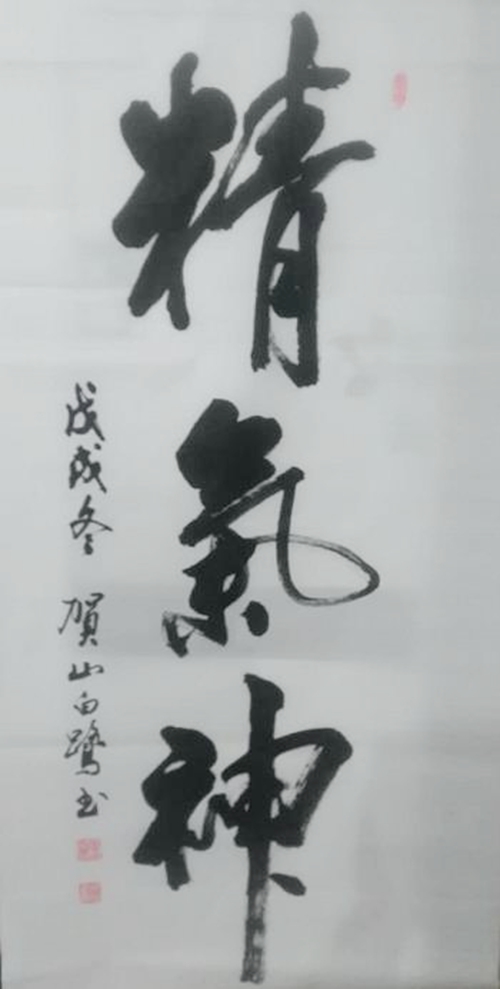 精氣神
戊戌冬 賀山白鷺书